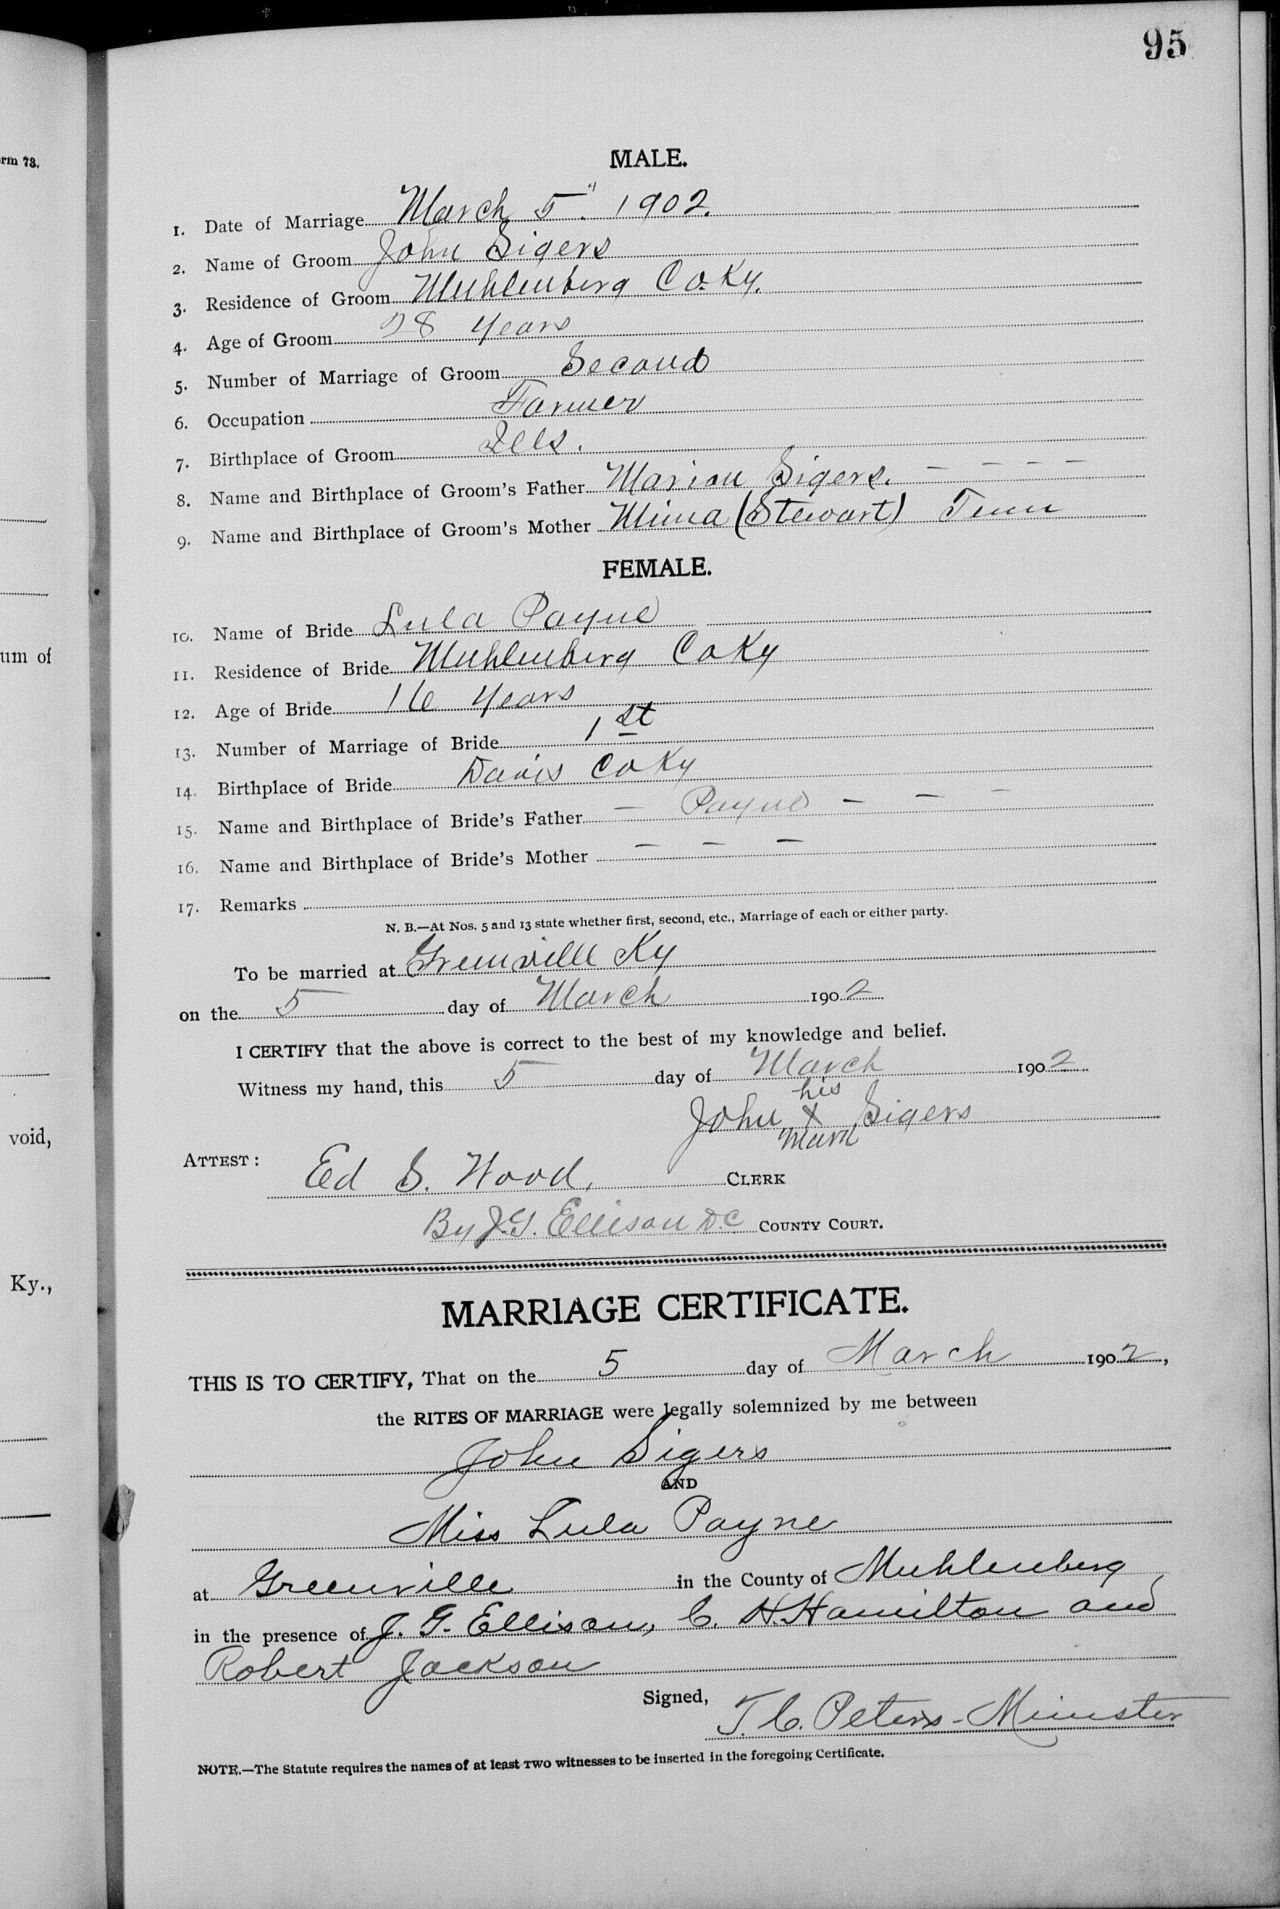 95
rm 78.
MALE.
1. Date of Marriage March 5" 1902.
2. Name of Groom John Sigers
3. Residence of Groom Muhlenberg Co. Ky.
4. Age of Groom 28 years
5. Number of Marriage of Groom Second
6. Occupation Farmer
7. Birthplace of Groom Ills.
8. Name and Birthplace of Groom's Father Marion Sigers. – – – –
9. Name and Birthplace of Groom's Mother Mima (Stewart) Tenn
FEMALE.
10. Name of Bride Lula Payne
um of
11. Residence of Bride Muhlenberg Co Ky
12. Age of Bride 16 years
13. Number of Marriage of Bride 1st
14. Birthplace of Bride Davis Co Ky
15. Name and Birthplace of Bride's Father – Payne – – –
16. Name and Birthplace of Bride's Mother – – –
17. Remarks
N. B.—At Nos. 5 and 13 state whether first, second, etc., Marriage of each or either party.
To be married at Greenville Ky
on the 5 day of March 1902
I CERTIFY that the above is correct to the best of my knowledge and belief.
Witness my hand, this 5 day of March 1902
his
John X Sigers
mark
void,
ATTEST: Ed S. Wood, CLERK
By J.G. Ellison D.C. COUNTY COURT.
Ky.,
MARRIAGE CERTIFICATE.
THIS IS TO CERTIFY, That on the 5 day of March 1902,
the RITES OF MARRIAGE were legally solemnized by me between
John Sigers
AND
Miss Lula Payne
at Greenville in the County of Muhlenberg,
in the presence of J. G. Ellison, C. H. Hamilton and
Robert Jackson
Signed, T. C. Peters - Minister
NOTE.—The Statute requires the names of at least TWO witnesses to be inserted in the foregoing Certificate.